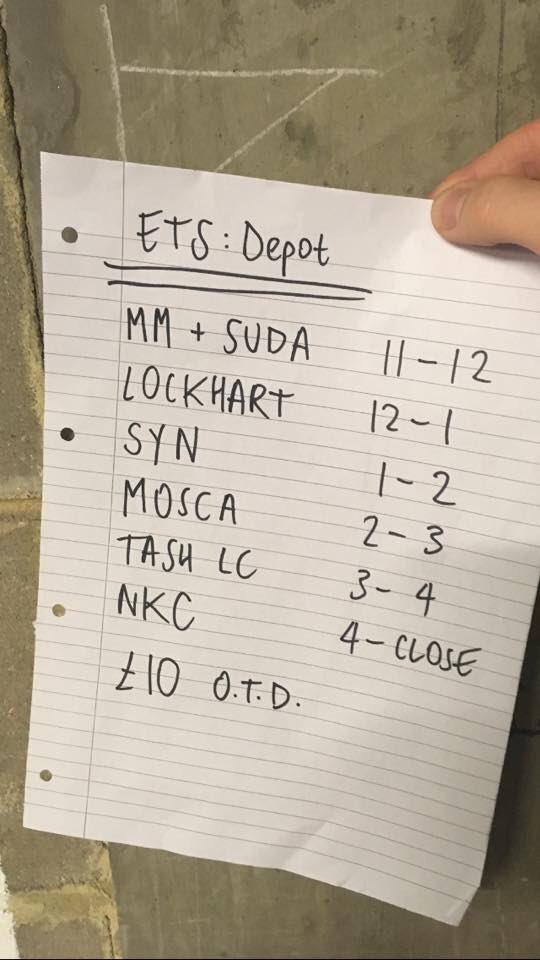 ETS: Depot
MM + SUDA 11-12
LOCKHART 12-1
SYN 1-2
MOSCA 2-3
TASH LC 3-4
NKC 4-CLOSE
£10 O.T.D.